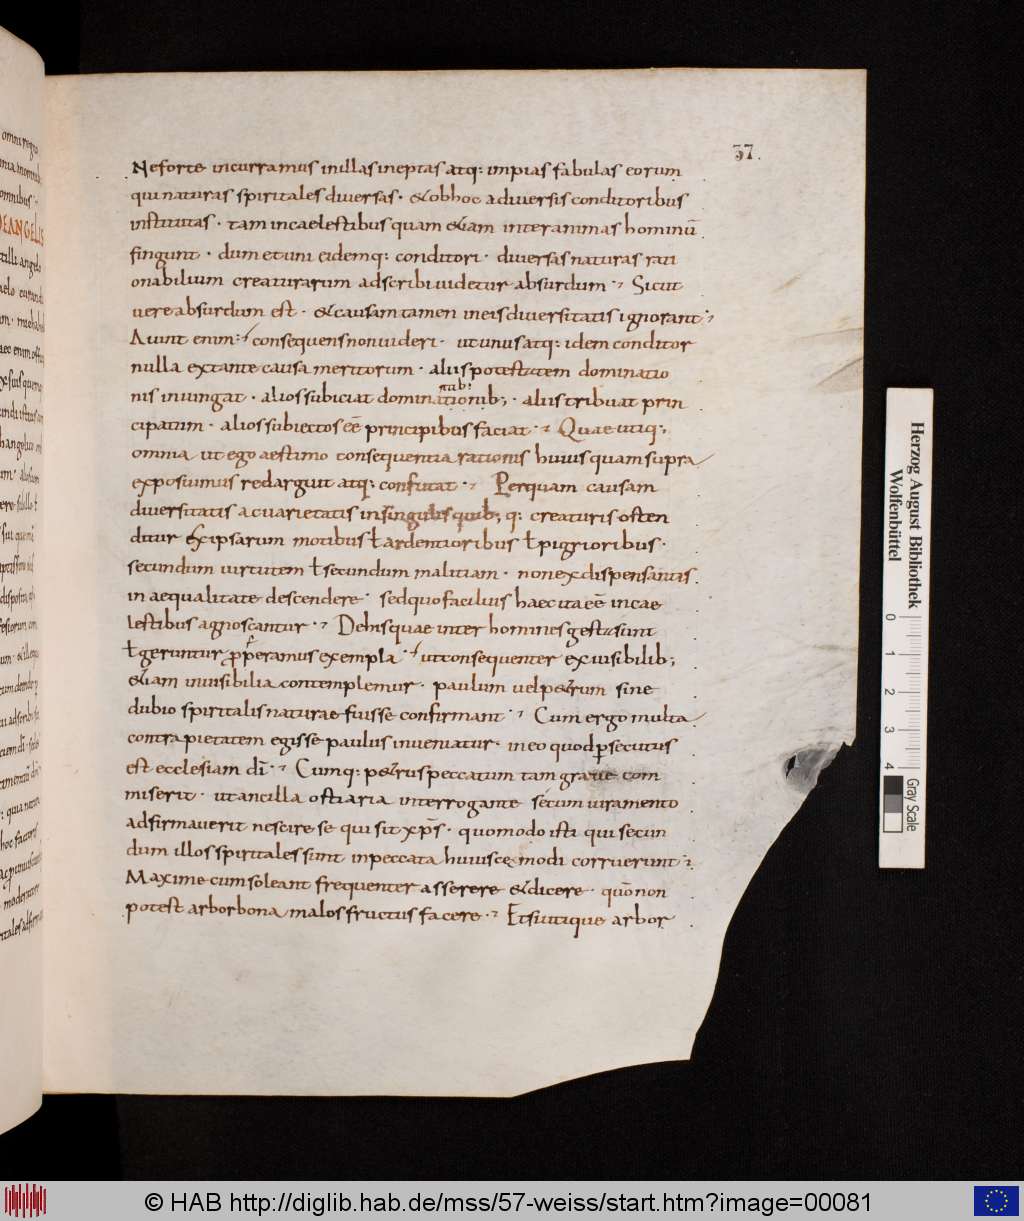 37.
Neforte incurramus inillas ineptas atq: impias fabulas eorum
qui naturas spiritales diversas · &obhoc adiversis conditoribus
institutas · tam incaelestibus quam &iam inter animas hominū
fingunt · dum et uni eidemq: conditori · diversas naturas rati
onabilium creaturarum adscribi videtur absurdum · Sicut
vere absurdum est · &causam tamen ineis diversitatis ignorant
Aiunt enim: consequens non videri · ut unus atq: idem conditor
nulla extante causa meritorum · aliis potestatem dominatio
nis iniungat · alios subiciat dominationib; · aliis tribuat prin
cipatum · alios subiectos eē principibus faciat · Quae utiq;
omnia ut ego aestimo consequentia rationis huius quam supra
exposuimus redarguit atq: confutat · Perquam causam
diversitatis ac varietatis in singulis quib; q: creaturis osten
ditur &exipsarum motibus ł ardentioribus ł pigrioribus ·
secundum virtutem ł secundum malitiam · non ex dispensantis
in aequalitate descendere · sed quo facilius haec ita eē in cae
lestibus agnoscantur · De his quae inter homines gesta sunt
ł geruntur pperamus exempla ut consequenter ex visibilib;
&iam invisibilia contemplemur · paulum vel p&rum sine
dubio spiritalis naturae fuisse confirmant · Cum ergo multa
contra pietatem egisse paulus inveniatur · in eo quod psecutus
est ecclesiam dī · Cumq: p&rus peccatum tam grave com
miserit · ut ancilla ostiaria interrogante secum iuramento
adfirmaverit nescire se qui sit xps · quomodo isti qui secun
dum illos spiritales sunt in peccata huiuscemodi corruerunt
Maxime cum soleant frequenter asserere &dicere · quōnon
potest arbor bona malos fructus facere · Et si utique arbor
Herzog August Bibliothek
Wolfenbüttel
0 1 2 3 4
Gray Scale
© HAB http://diglib.hab.de/mss/57-weiss/start.htm?image=00081